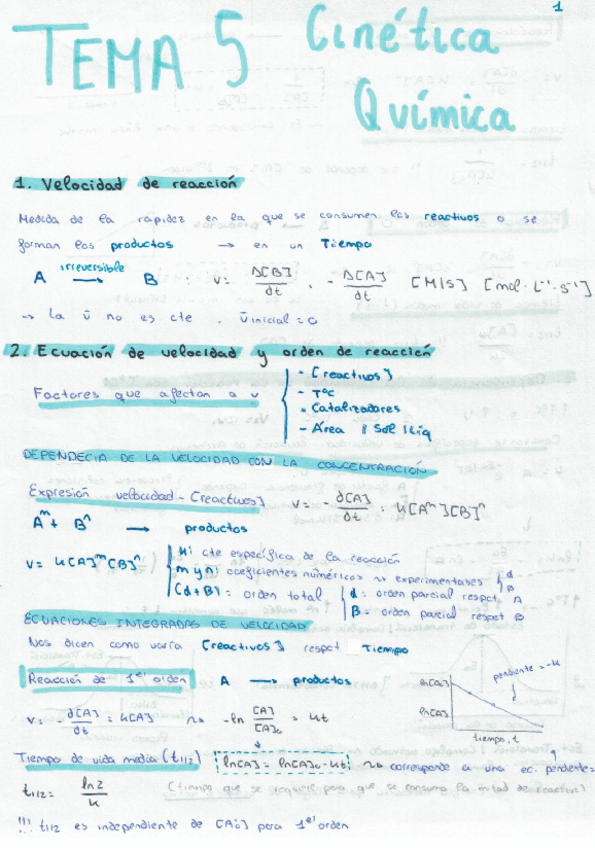 1
TEMA 5 Cinética
Química
1. Velocidad de reacción
Medida de la rapidez en la que se consumen los reactivos o se
forman los productos → en un Tiempo
A irreversible → B : v= Δ[B]/dt , - Δ[A]/dt [M/s] [mol · L⁻¹ · s⁻¹]
→ La v no es cte . v inicial = 0
2. Ecuación de velocidad y orden de reacción
Factores que afectan a v
- [reactivos]
- TºC
- Catalizadores
- Área Sol líq
DEPENDECIA DE LA VELOCIDAD CON LA CONCENTRACIÓN
Expresión velocidad - [reactivos] v = - d[A]/dt = K[A^m][B]^n
A^m + B^n → productos
v = K[A]^m[B]^n
K: cte específica de la reacción
m y n: coeficientes numéricos ~> experimentales
(α+β) = orden total
α = orden parcial respct. A
β = orden parcial respct B
ECUACIONES INTEGRADAS DE VELOCIDAD
Nos dicen como varía [reactivos] respct Tiempo
Reacción de 1er orden A → productos
v = - d[A]/dt = K[A] ~> -ln [A]/[A]₀ = Kt
ln[A]₀
ln[A]
pendiente = -K
tiempo, t
Tiempo de vida media (t1/2) ln[A] = ln[A]₀ - Kt ~> corresponde a una ec. pendiente
t1/2 = ln2/K (tiempo que se requiere para que se consuma la mitad de reactivo)
!!! t1/2 es independiente de [A₀] para 1er orden